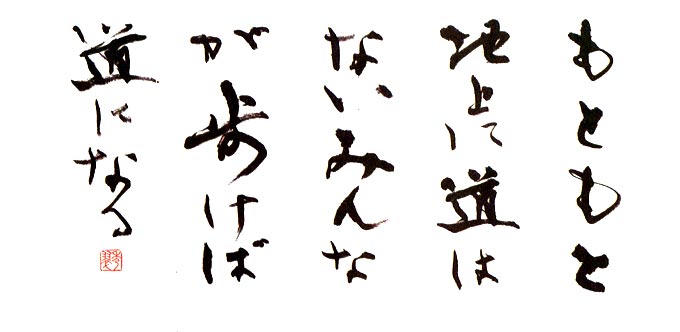 もともと
地上に道は
ないみんな
が歩けば
道になる